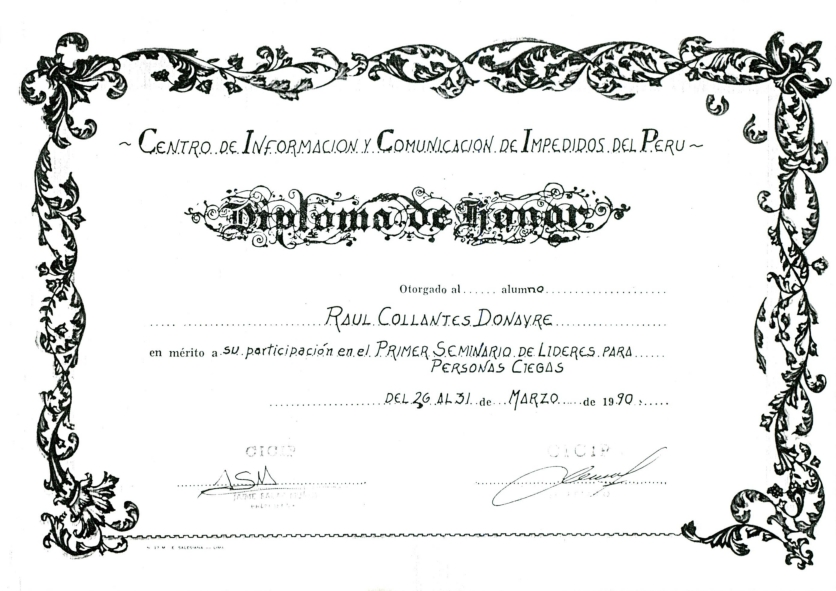 ~ CENTRO DE INFORMACION Y COMUNICACION DE IMPEDIDOS DEL PERU ~
Diploma de Honor
Otorgado al ...... alumno ....................
..... ........ RAUL COLLANTES DONAYRE
en mérito a su participación en el PRIMER SEMINARIO DE LIDERES PARA ......
PERSONAS CIEGAS
.................... DEL 26 AL 31 .. de ... MARZO ..... de 1990 ......
CICIP CICIP
ASM